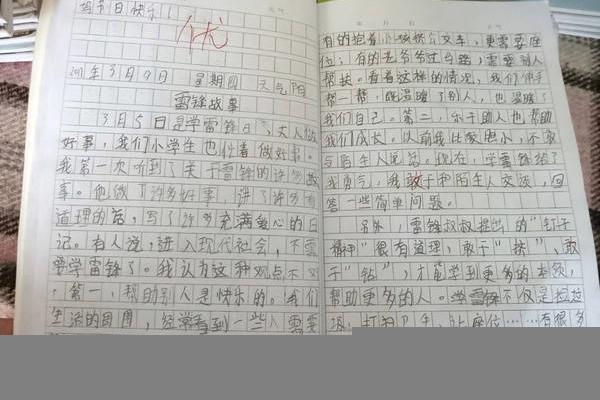 节日快乐!
优
年3月9日 星期四 天气阳
雷锋故事
3月5日是学雷锋日,大人做
好事,我们小学生也忙着做好事。
我第一次听到了关于雷锋的许多故
事。他做了许多好事,讲了许多有
道理的话,写了许多充满爱心的日
记。有人说,进入现代社会,不需
要学雷锋了。我认为这种观点不对
。第一,帮助别人是快乐的。我们
生活的周围,经常看到一些人需要
有的抱着小孩挤公交车,更需要座
位;有的老爷爷过马路,需要别人
帮扶。看着这样的情况,我们伸手
帮一帮,既温暖了别人,也温暖了
我们自己。第二,乐于助人也帮助
我们成长。以前我比较胆小,不敢
与陌生人说话。现在,学雷锋给了
我勇气,我敢于和陌生人交谈,回
答一些简单问题。
另外,雷锋叔叔提出的“钉子
精神”很有道理,敢于“挤”、敢
于“钻”,才能学到更多的本领,
帮助更多的人。学雷锋不仅是捡垃
圾,打扫卫生,让座位……有很多